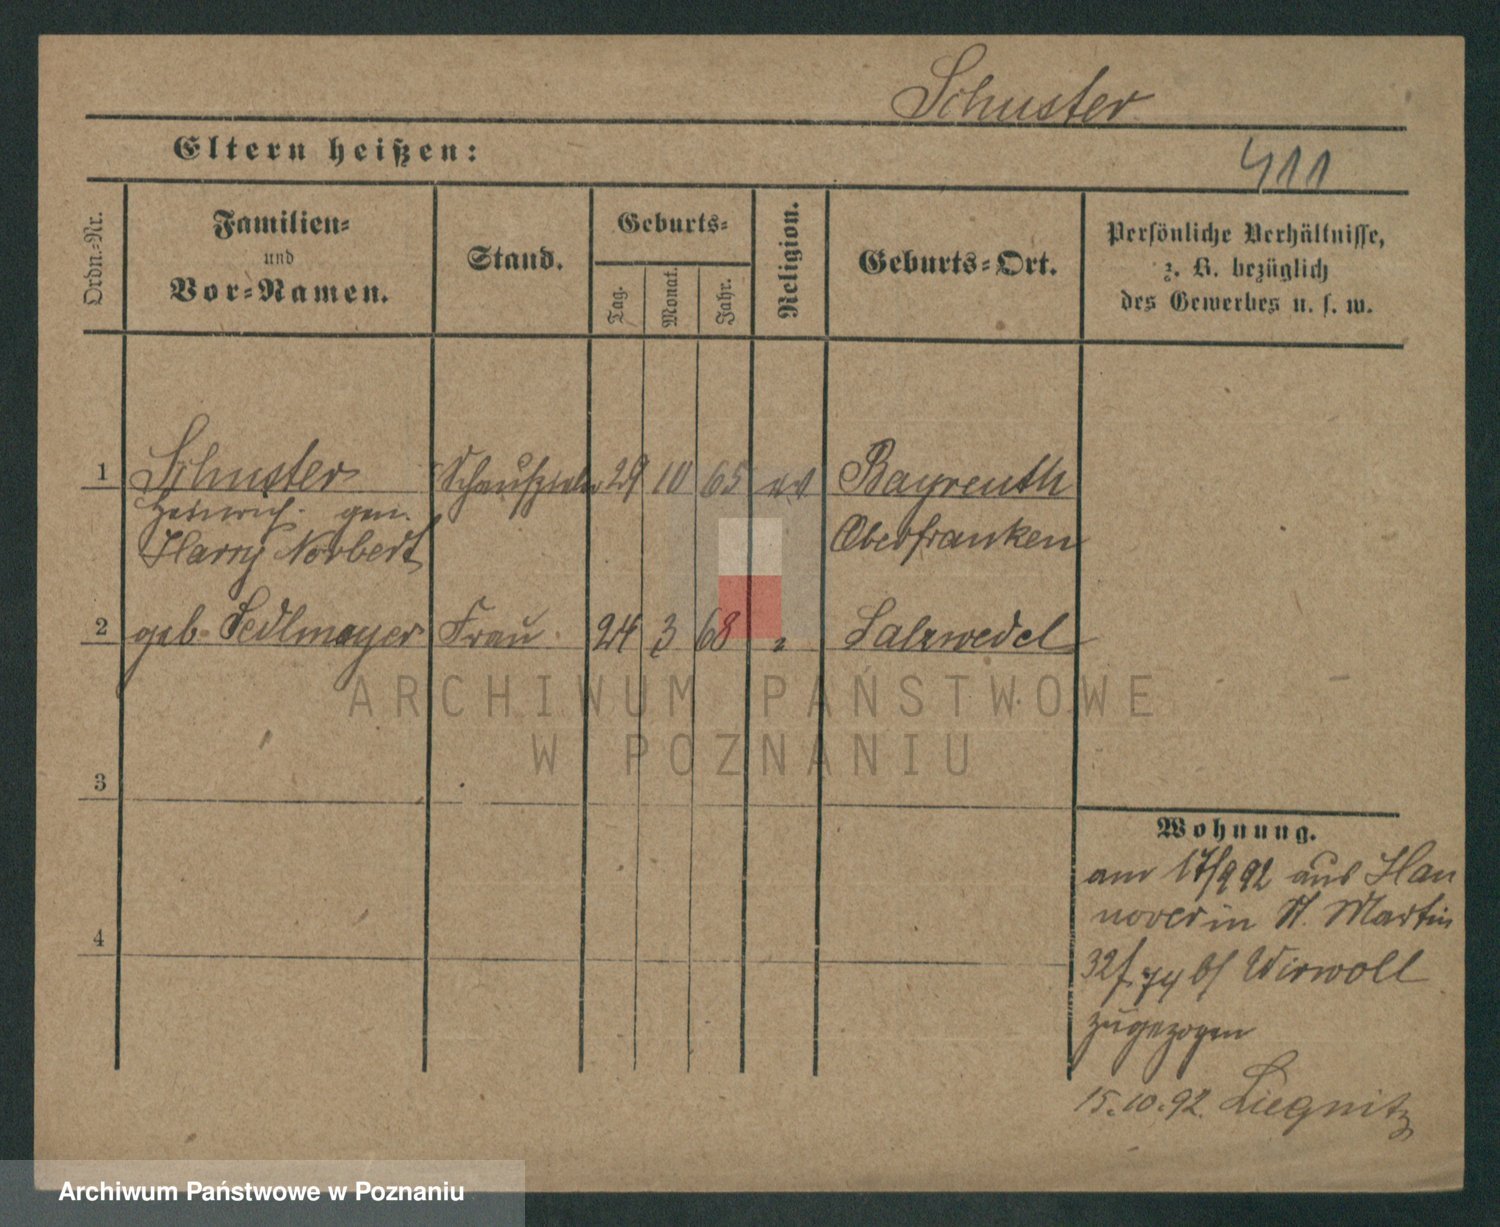 Schuster
Eltern heißen:
411
Ordn.-Nr.
Familien-
und
Vor-Namen.
Stand.
Geburts-
Tag.
Monat.
Jahr.
Religion.
Geburts-Ort.
Persönliche Verhältnisse,
z. B. bezüglich
des Gewerbes u. s. w.
1 Schuster Schauspieler 29 10 65 ev Bayreuth
Heinrich gen. Oberfranken
Harry Norbert
2 geb. Sedlmayer Frau 24 3 68 " Salzwedel
ARCHIWUM PAŃSTWOWE
W POZNANIU
3
4
Wohnung.
am 17/9 92 aus Han
nover in St. Martin
32 Wirwoll
zugezogen
15.10.92. Liegnitz
Archiwum Państwowe w Poznaniu